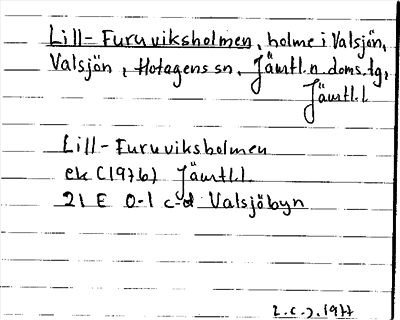 Lill-Furuviksholmen, holme i Valsjön,
Valsjön, Hotagens sn, Jämtl. n. doms.lg,
Jämtl. l
Lill-Furuviksholmen
ek (1976) Jämtl.l
21 E 0-1 c-d Valsjöbyn
1977